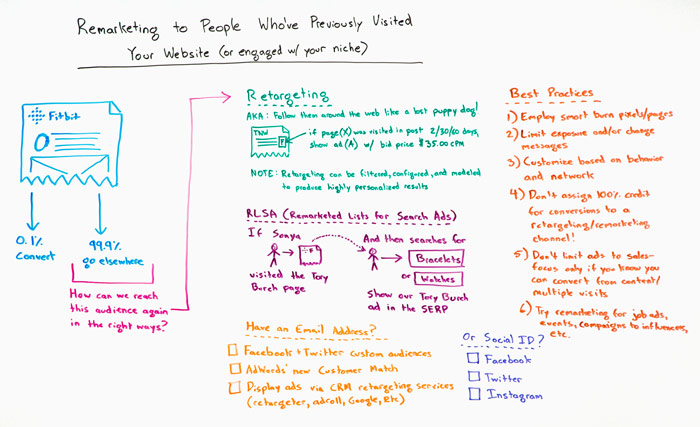 Remarketing to People Who've Previously Visited
Your Website (or engaged w/ your niche)
Fitbit
0.1%
Convert
99.9%
go elsewhere
How can we reach
this audience again
in the right ways?
Retargeting
AKA: Follow them around the web like a lost puppy dog!
TNW
if page(X) was visited in past 2/30/60 days,
show ad (A) w/ bid price $35.00 CPM
NOTE: Retargeting can be filtered, configured, and modeled
to produce highly personalized results
RLSA (Remarketed Lists for Search Ads)
If Sonya
visited the Tory
Burch page
And then searches for
Bracelets
or Watches
Show our Tory Burch
ad in the SERP
Have an Email Address?
Facebook + Twitter custom audiences
AdWords' new Customer Match
Display ads via CRM retargeting services
(retargeter, adroll, Google, Etc)
Or Social ID?
Facebook
Twitter
Instagram
Best Practices
1) Employ smart burn pixels/pages
2) Limit exposure and/or change
messages
3) Customize based on behavior
and network
4) Don't assign 100% credit
for conversions to a
retargeting/remarketing
channel!
5) Don't limit ads to sales-
focus only if you know you
can convert from content/
multiple visits
6) Try remarketing for job ads,
events, campaigns to influencers,
etc.